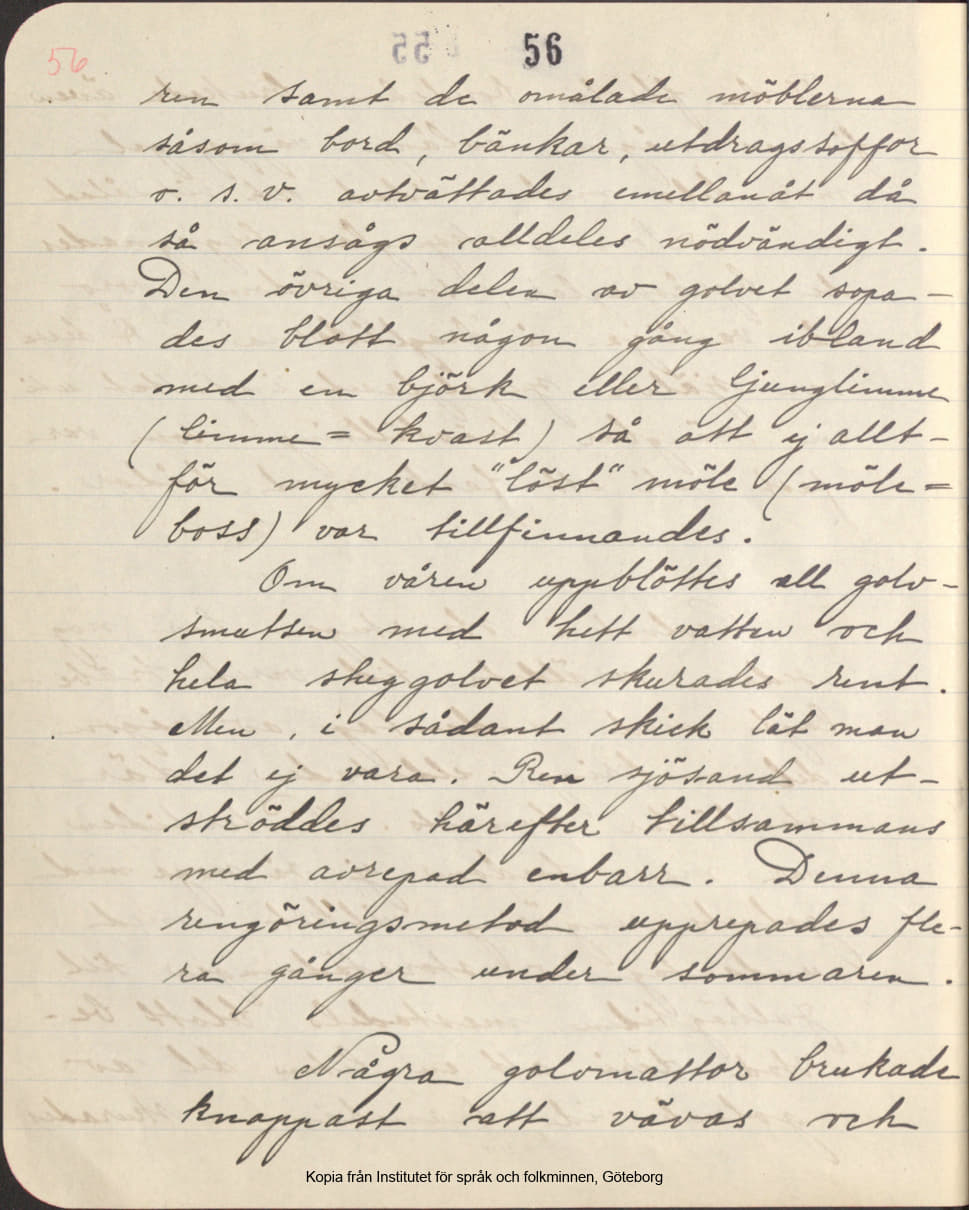 56
55 56
ren samt de omålade möblerna
såsom bord, bänkar, utdragssoffor
o. s. v. avtvättades emellanåt då
så ansågs alldeles nödvändigt.
Den övriga delen av golvet sopa-
des blott någon gång ibland
med en björk eller ljunglimme
(limme = kvast) så att ej allt-
för mycket "löst" möle (möle =
boss) var tillfinnandes.
Om våren uppblöttes all golv-
smutsen med hett vatten och
hela stuggolvet skurades rent.
Men, i sådant skick lät man
det ej vara. Ren sjösand ut-
ströddes härefter tillsammans
med avrepad enbarr. Denna
rengöringsmetod upprepades fle-
ra gånger under sommaren.
Några golvmattor brukade
knappast att vävas och
Kopia från Institutet för språk och folkminnen, Göteborg